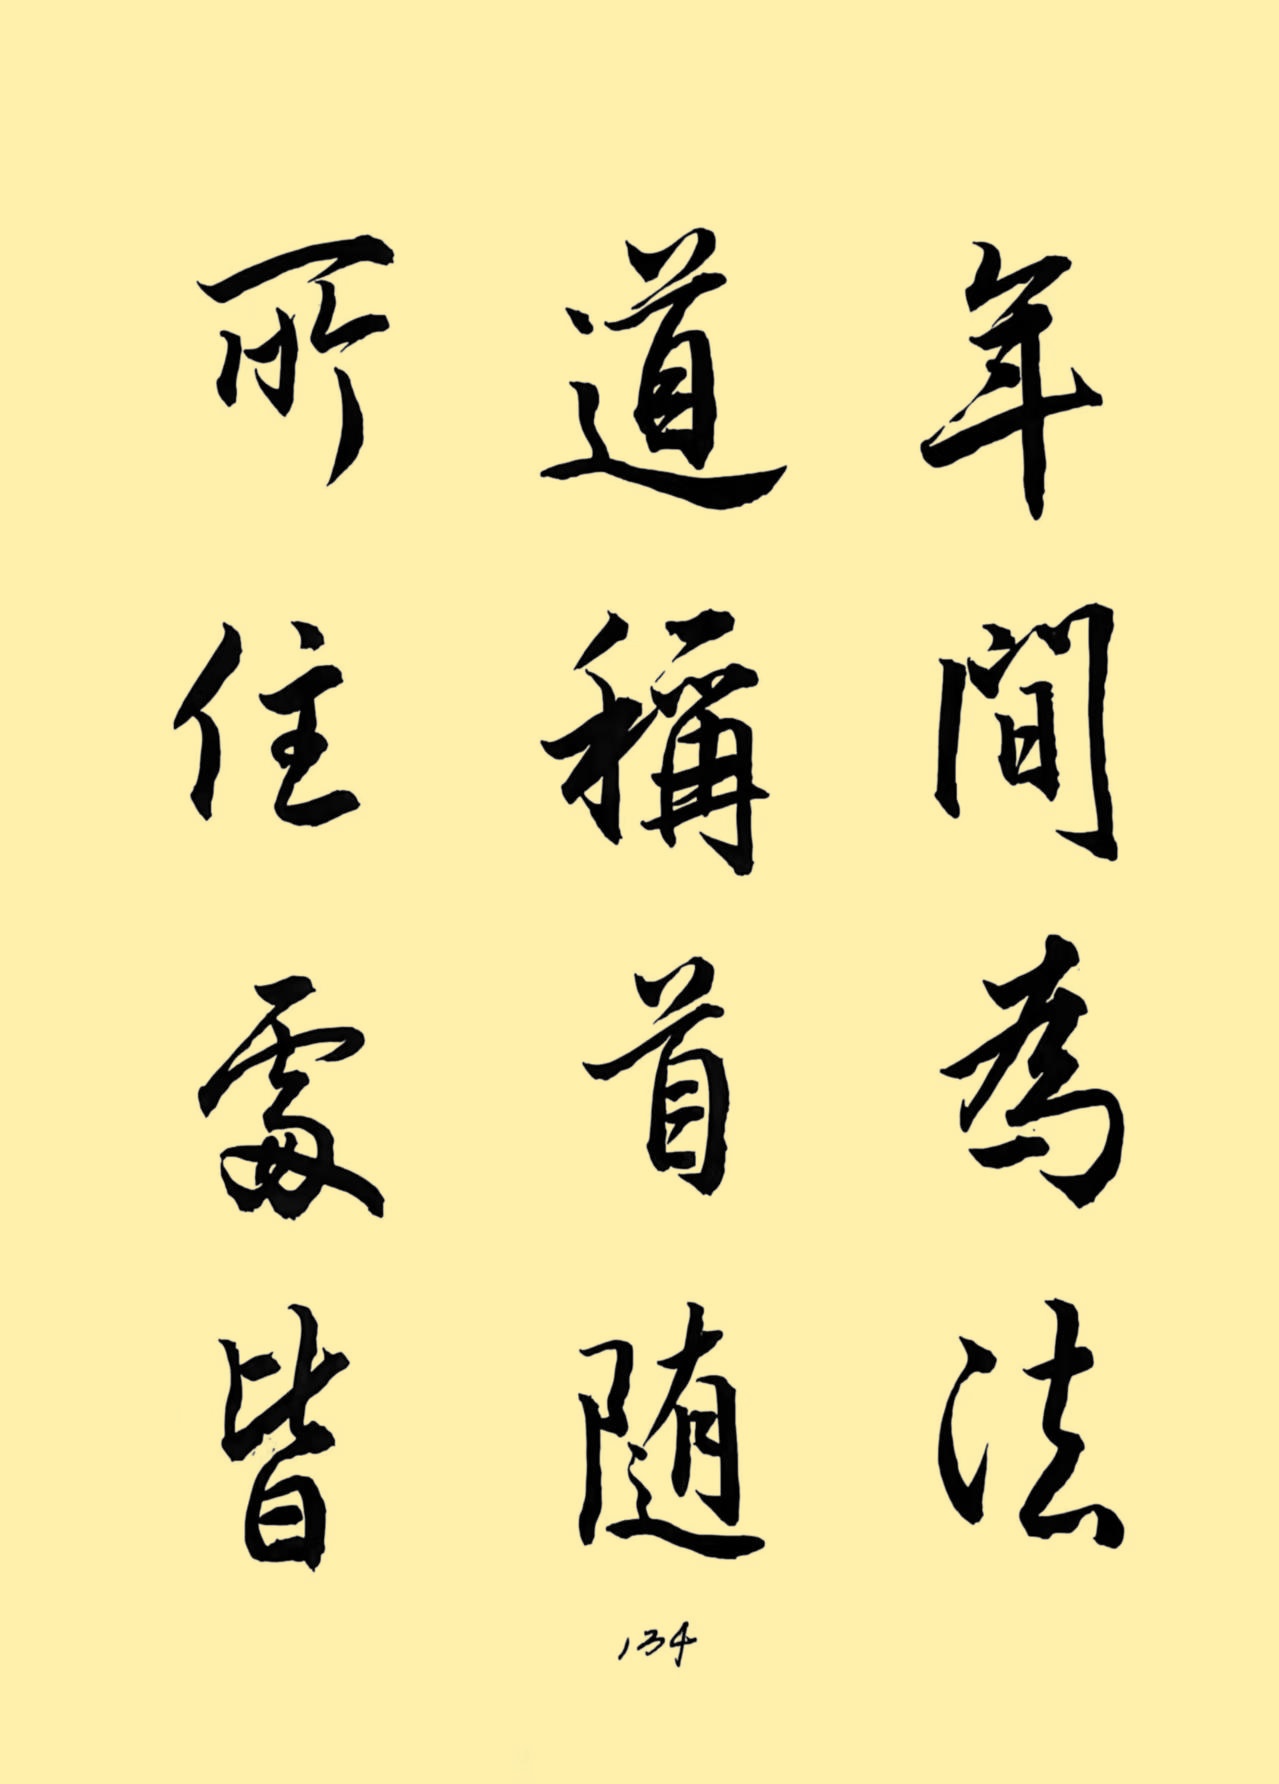 年間為法
道稱首随
所住處皆
134